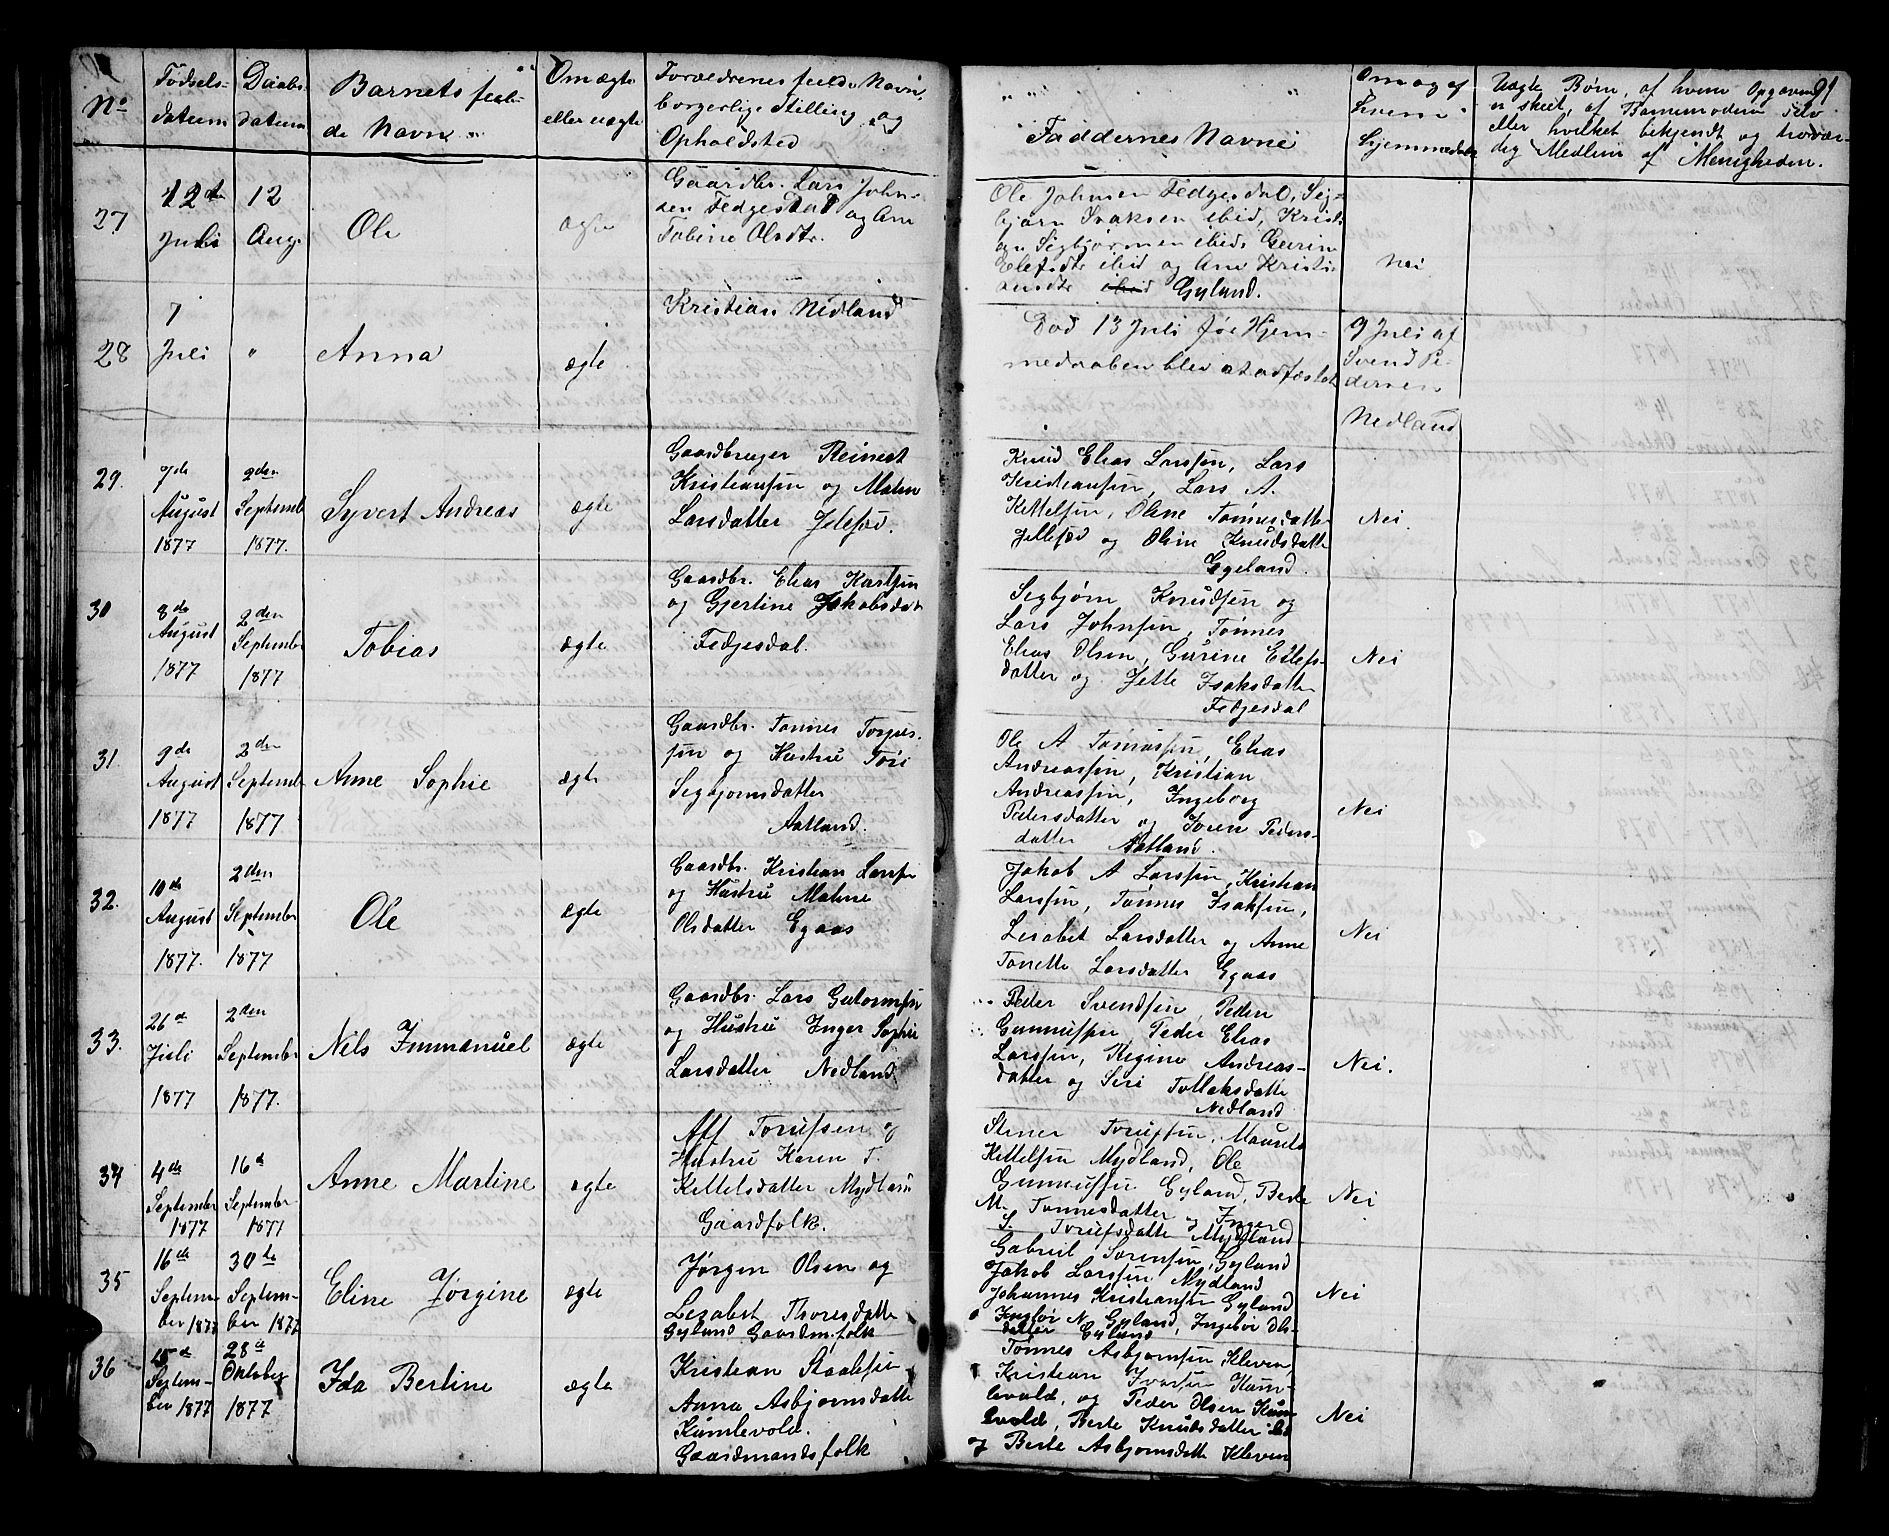 No
Fødsels-
datum
Daabs-
datum
Barnets ful-
de Navn
Om ægte
eller uægte
Forældrenes fulde Navn,
borgerlige Stilling og
Opholdsted
Faddernes Navne
Om og af
hvem
Hjemmedøbt
Uægte Børn, af hvem Opgaven
er skeet, af Barnemoderen selv
eller hvilket bekjendt og trovær-
dig Medlem af Menigheden.
91
27
12te
Juli
12
Aug.
Ole
ægte
Gaardbr. Lars John-
sen Fedgesdal og Ane
Tobine Olsdtr.
Ole Johnsen Fedgesdal, Sig-
bjørn Isaksen ibid, Kristi-
an Sigbjørnsen ibid, Gurine
Elefsdtr ibid og Ane Kristi-
ansdtr ibid Gyland.
Nei
28
7
Juli
"
Anna
ægte
Kristian Nedland
Død 13 Juli før Hjem-
medaaben blev stadfæstet
9 Juli af
Svend Pe-
dersen
Nedland
29.
7de
August
1877
2den
Septemb
1877.
Syvert Andreas
ægte
Gaardbruger Reinert
Kristiansen og Malene
Larsdatter
Knud Elias Larssen, Lars
Kristiansen, Lars A.
Kittelsen, Oline Tønnesdatter
og Oline Knudsdatter
Gyeland.
Nei.
30
8de
August
1877
2den
September
1877
Tobias
ægte
Gaardbr. Elias Karlsen
og Gjertine Jakobsdatr
Fedjesdal.
Segbjørn Knudsen og
Lars Johnsen, Tønnes
Elias Olsen, Gurine Ellefs-
datter og Jette Isaksdatter
Fedjesdal
Nei
31
9de
August
1877
2den
September
1877.
Anne Sophie
ægte
Gaardbr. Tønnes Torjus-
sen og Hustru Tori
Segbjørnsdatter
Aatland.
Ole A Tønnessen, Elias
Andreassen, Kristian
Andreassen, Ingeborg
Pedersdatter og Joren Peders-
datter Aatland.
Nei
32.
10de
August
1877.
2den
September
1877
Ole
ægte
Gaardbr. Kristian Larssen
og Hustru Malene
Olsdatter Egaas
Jakob A Larssen, Kristian
Larssen, Tønnes Isaksen,
Lisabet Larsdatter og Anne
Tonette Larsdatter Egaas
Nei
33.
26de
Juli
1877
2den
September
1877.
Nils Immanuel
ægte
Gaardbr. Lars Gutormsen
og Hustru Inger Sophie
Larsdatter Nedland
Peder Svendsen, Peder
Gunnufsen, Peder Elias
Larssen, Regine Andreas-
datter og Siri Tollaksdatter
Nedland
Nei.
34
4de
September
1877
16de
September
1877
Anne Martine
ægte
Alf Torufsen og
Hustru Karen T.
Kittelsdatter Mydland
Gaardfolk.
Stener Torufsen, Maurits
Kittelsen Mydland, Ole
Gunnufsen Gyland, Berte
M. Tønnesdatter og Inger
S. Torufsdatter Mydland
Nei
35
16de
Septem-
ber 1877
30te
Septem-
ber 1877
Eline Jørgine
ægte
Jørgen Olsen og
Lisabet Thoresdatter
Gyland Gaardmfolk
Gabriel Sørensen, Gyland
Jakob Larssen, Mydland
Johannes Kristiansen Gyland
Ingbør N. Gyland, Ingebør Ols-
datter Gyland
Nei
36
15de
Septem-
ber 1877
28de
Oktober
1877
Ida Bertine
ægte
Kristian Staalesen
Anna Asbjørnsdatter
Kumlevold.
Gaardmandsfolk
Tønnes Asbjørnsen, Kleven
Kristian Ivarsen Kum-
levold, og Peder Olsen Kum-
levold, Berte Knudsdatter ibd
og Berte Asbjørnsdatt Kleven
Nei